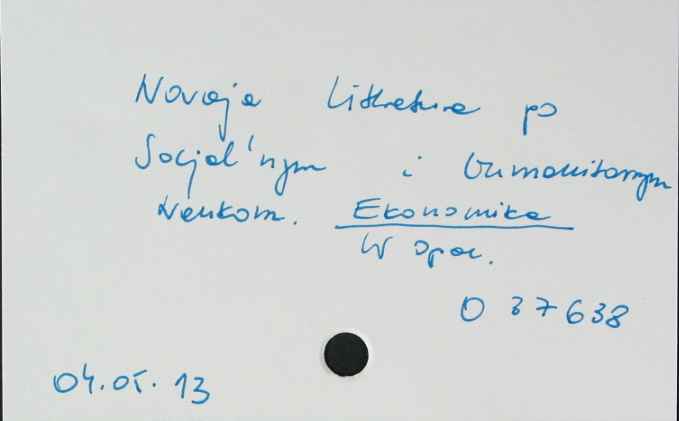 Novaja Literatura po
Socjal'nym i Gumanitarnym
Naukam. Ekonomika
W opac.
O 37638
04.05.13